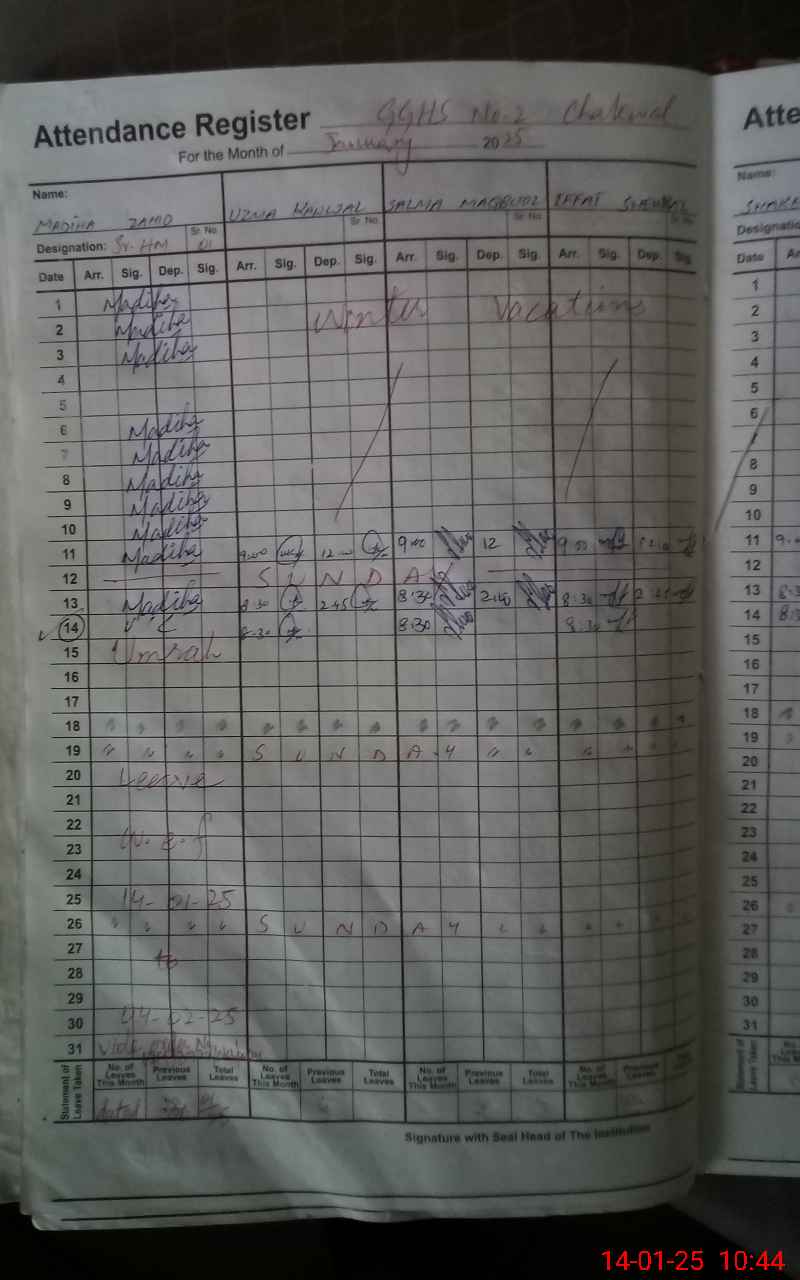 Attendance Register GGHS No. 2 Chakwal
For the Month of January 2025
Name:
MADIHA ZAHID UZMA KANWAL SALMA MAQBOOL IFFAT
Sr. No. Sr. No. Sr. No. Sr. No.
Designation: Sr. HM 01
Date Arr. Sig. Dep. Sig. Arr. Sig. Dep. Sig. Arr. Sig. Dep. Sig. Arr. Sig. Dep. Sig.
1 Madiha
2 Madiha Winter Vacations
3 Madiha
4
5
6 Madiha
7 Madiha
8 Madiha
9 Madiha
10 Madiha
11 Madiha 9:00 12:00 9:00 12 9:00
12 SUNDAY
13 Madiha 8:30 2:45 8:30 8:30
14 8:30 8:30 8:30
15 Umrah
16
17
18
19 SUNDAY
20 Leave
21
22
23 w.e.f
24
25 14-01-25
26 SUNDAY
27
28 to
29
30
31
Statement of Leave Taken
No. of Leaves This Month Previous Leaves Total Leaves No. of Leaves This Month Previous Leaves Total Leaves No. of Leaves This Month Previous Leaves Total Leaves No. of Leaves This Month Previous Leaves
dated
Signature with Seal Head of The Institution
Atte
Name:
Designatio
Date Ar
1
2
3
4
5
6
7
8
9
10
11 9
12
13 8:3
14 8:3
15
16
17
18
19
20
21
22
23
24
25
26
27
28
29
30
31
14-01-25 10:44